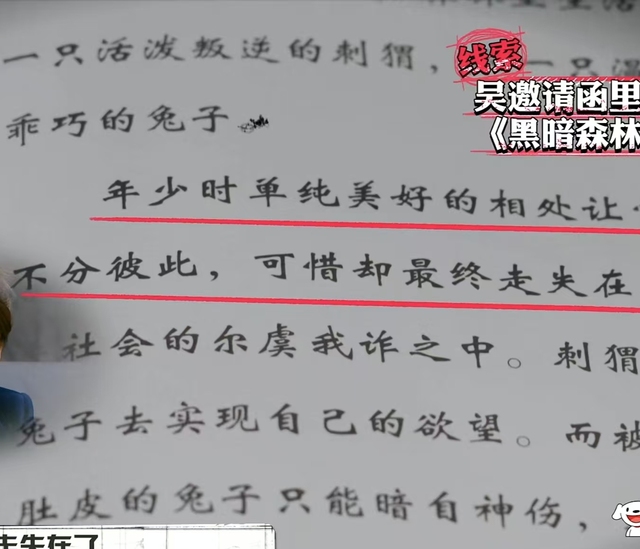 一只活泼叛逆的刺猬，一只温
乖巧的兔子
年少时单纯美好的相处让
不分彼此，可惜却最终走失在
社会的尔虞我诈之中。刺猬
兔子去实现自己的欲望。而被
肚皮的兔子只能暗自神伤，
线索
吴邀请函里
《黑暗森林
走失在了